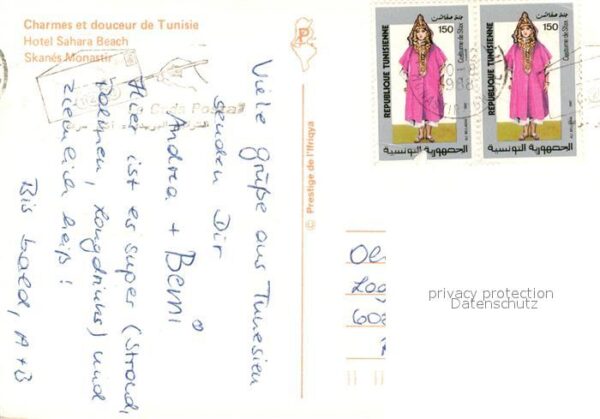 Charmes et douceur de Tunisie
Hotel Sahara Beach
Skanés Monastir
Viele Grüße aus Tunesien
senden Dir
Andrea + Berni
Hier ist es super (Strand,
Palmen, Longdrinks) und
ziemlich heiß!
Bis bald, A+B
© Prestige de l'Ifriqya
REPUBLIQUE TUNISIENNE
150
الجمهورية التونسية
REPUBLIQUE TUNISIENNE
150
الجمهورية التونسية
1988
Code Postal
privacy protection
Datenschutz